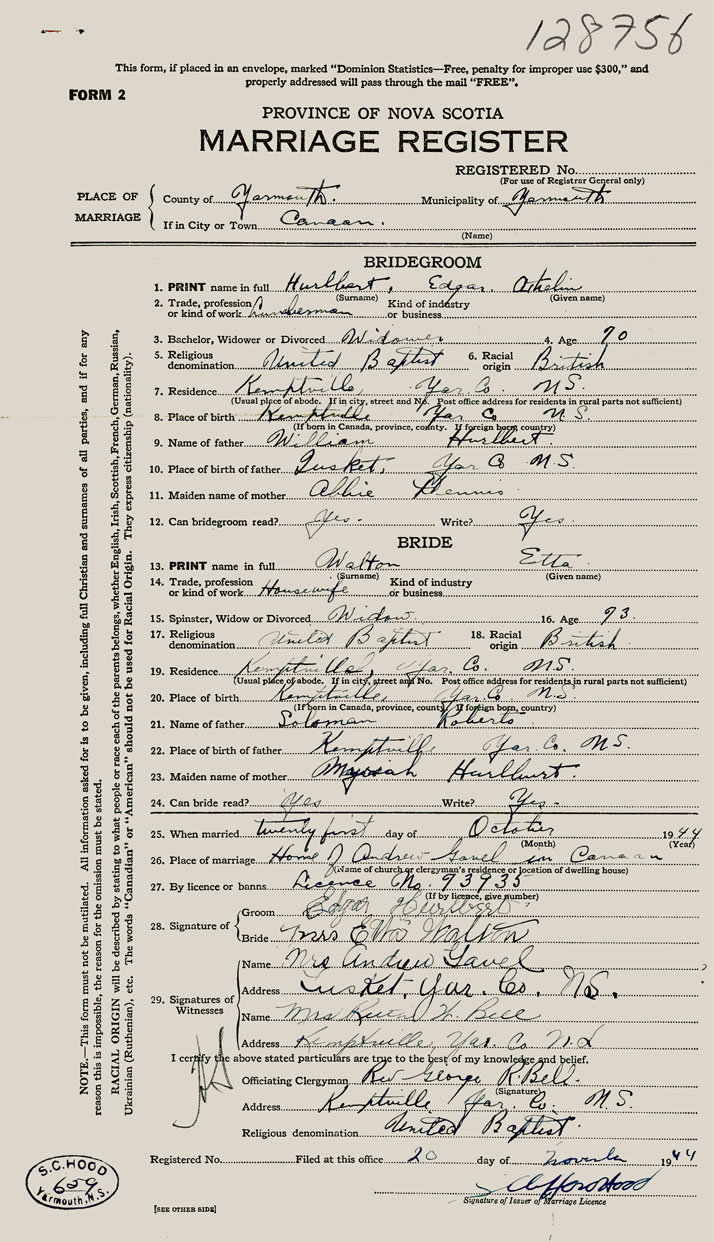 128756
This form, if placed in an envelope, marked "Dominion Statistics—Free, penalty for improper use $300," and
properly addressed will pass through the mail "FREE".
FORM 2
PROVINCE OF NOVA SCOTIA
MARRIAGE REGISTER
REGISTERED No.
(For use of Registrar General only)
PLACE OF MARRIAGE
County of Yarmouth. Municipality of Yarmouth
If in City or Town Canaan.
(Name)
BRIDEGROOM
1. PRINT name in full Hurlbert, Edgar
(Surname) (Given name)
2. Trade, profession or kind of work Lumberman Kind of industry or business
3. Bachelor, Widower or Divorced Widower 4. Age 70
5. Religious denomination United Baptist 6. Racial origin British
7. Residence Kemptville Yar. Co. N.S.
(Usual place of abode. If in city, street and No. Post office address for residents in rural parts not sufficient)
8. Place of birth Kemptville Yar Co N.S.
(If born in Canada, province, county. If foreign born, country)
9. Name of father William Hurlbert.
10. Place of birth of father Tusket, Yar Co N.S.
11. Maiden name of mother Abbie
12. Can bridegroom read? Yes. Write? Yes.
BRIDE
13. PRINT name in full Walton Etta
(Surname) (Given name)
14. Trade, profession or kind of work Housewife Kind of industry or business
15. Spinster, Widow or Divorced Widow. 16. Age 73.
17. Religious denomination United Baptist 18. Racial origin British.
19. Residence Kemptville, Yar. Co. N.S.
(Usual place of abode. If in city, street and No. Post office address for residents in rural parts not sufficient)
20. Place of birth Kemptville, Yar. Co N.S.
(If born in Canada, province, county. If foreign born, country)
21. Name of father Soloman Roberts
22. Place of birth of father Kemptville Yar. Co. N.S.
23. Maiden name of mother Hurlburt.
24. Can bride read? Yes Write? Yes-
25. When married twenty first day of October 1944
(Month) (Year)
26. Place of marriage Home of Andrew Gavel in Canaan
(Name of church or clergyman's residence or location of dwelling house)
27. By licence or banns Licence No. 93935
(If by licence, give number)
28. Signature of
Groom Edgar Hurlbert
Bride Mrs Etta Walton
29. Signatures of Witnesses
Name Mrs Andrew Gavel
Address Tusket, Yar. Co. N.S.
Name Mrs H. Bell
Address Kemptville, Yar. Co N.S
I certify the above stated particulars are true to the best of my knowledge and belief.
Officiating Clergyman Rev George R. Bell.
(Signature)
Address Kemptville Yar. Co. N.S.
Religious denomination United Baptist.
Registered No. Filed at this office 20 day of November 1944
Signature of Issuer of Marriage Licence
[SEE OTHER SIDE]
S.C. HOOD
659
Yarmouth, N.S.
NOTE.—This form must not be mutilated. All information asked for is to be given, including full Christian and surnames of all parties, and if for any
reason this is impossible, the reason for the omission must be stated.
RACIAL ORIGIN will be described by stating to what people or race each of the parents belongs, whether English, Irish, Scottish, French, German, Russian,
Ukrainian (Ruthenian), etc. The words "Canadian" or "American" should not be used for Racial Origin. They express citizenship (nationality).